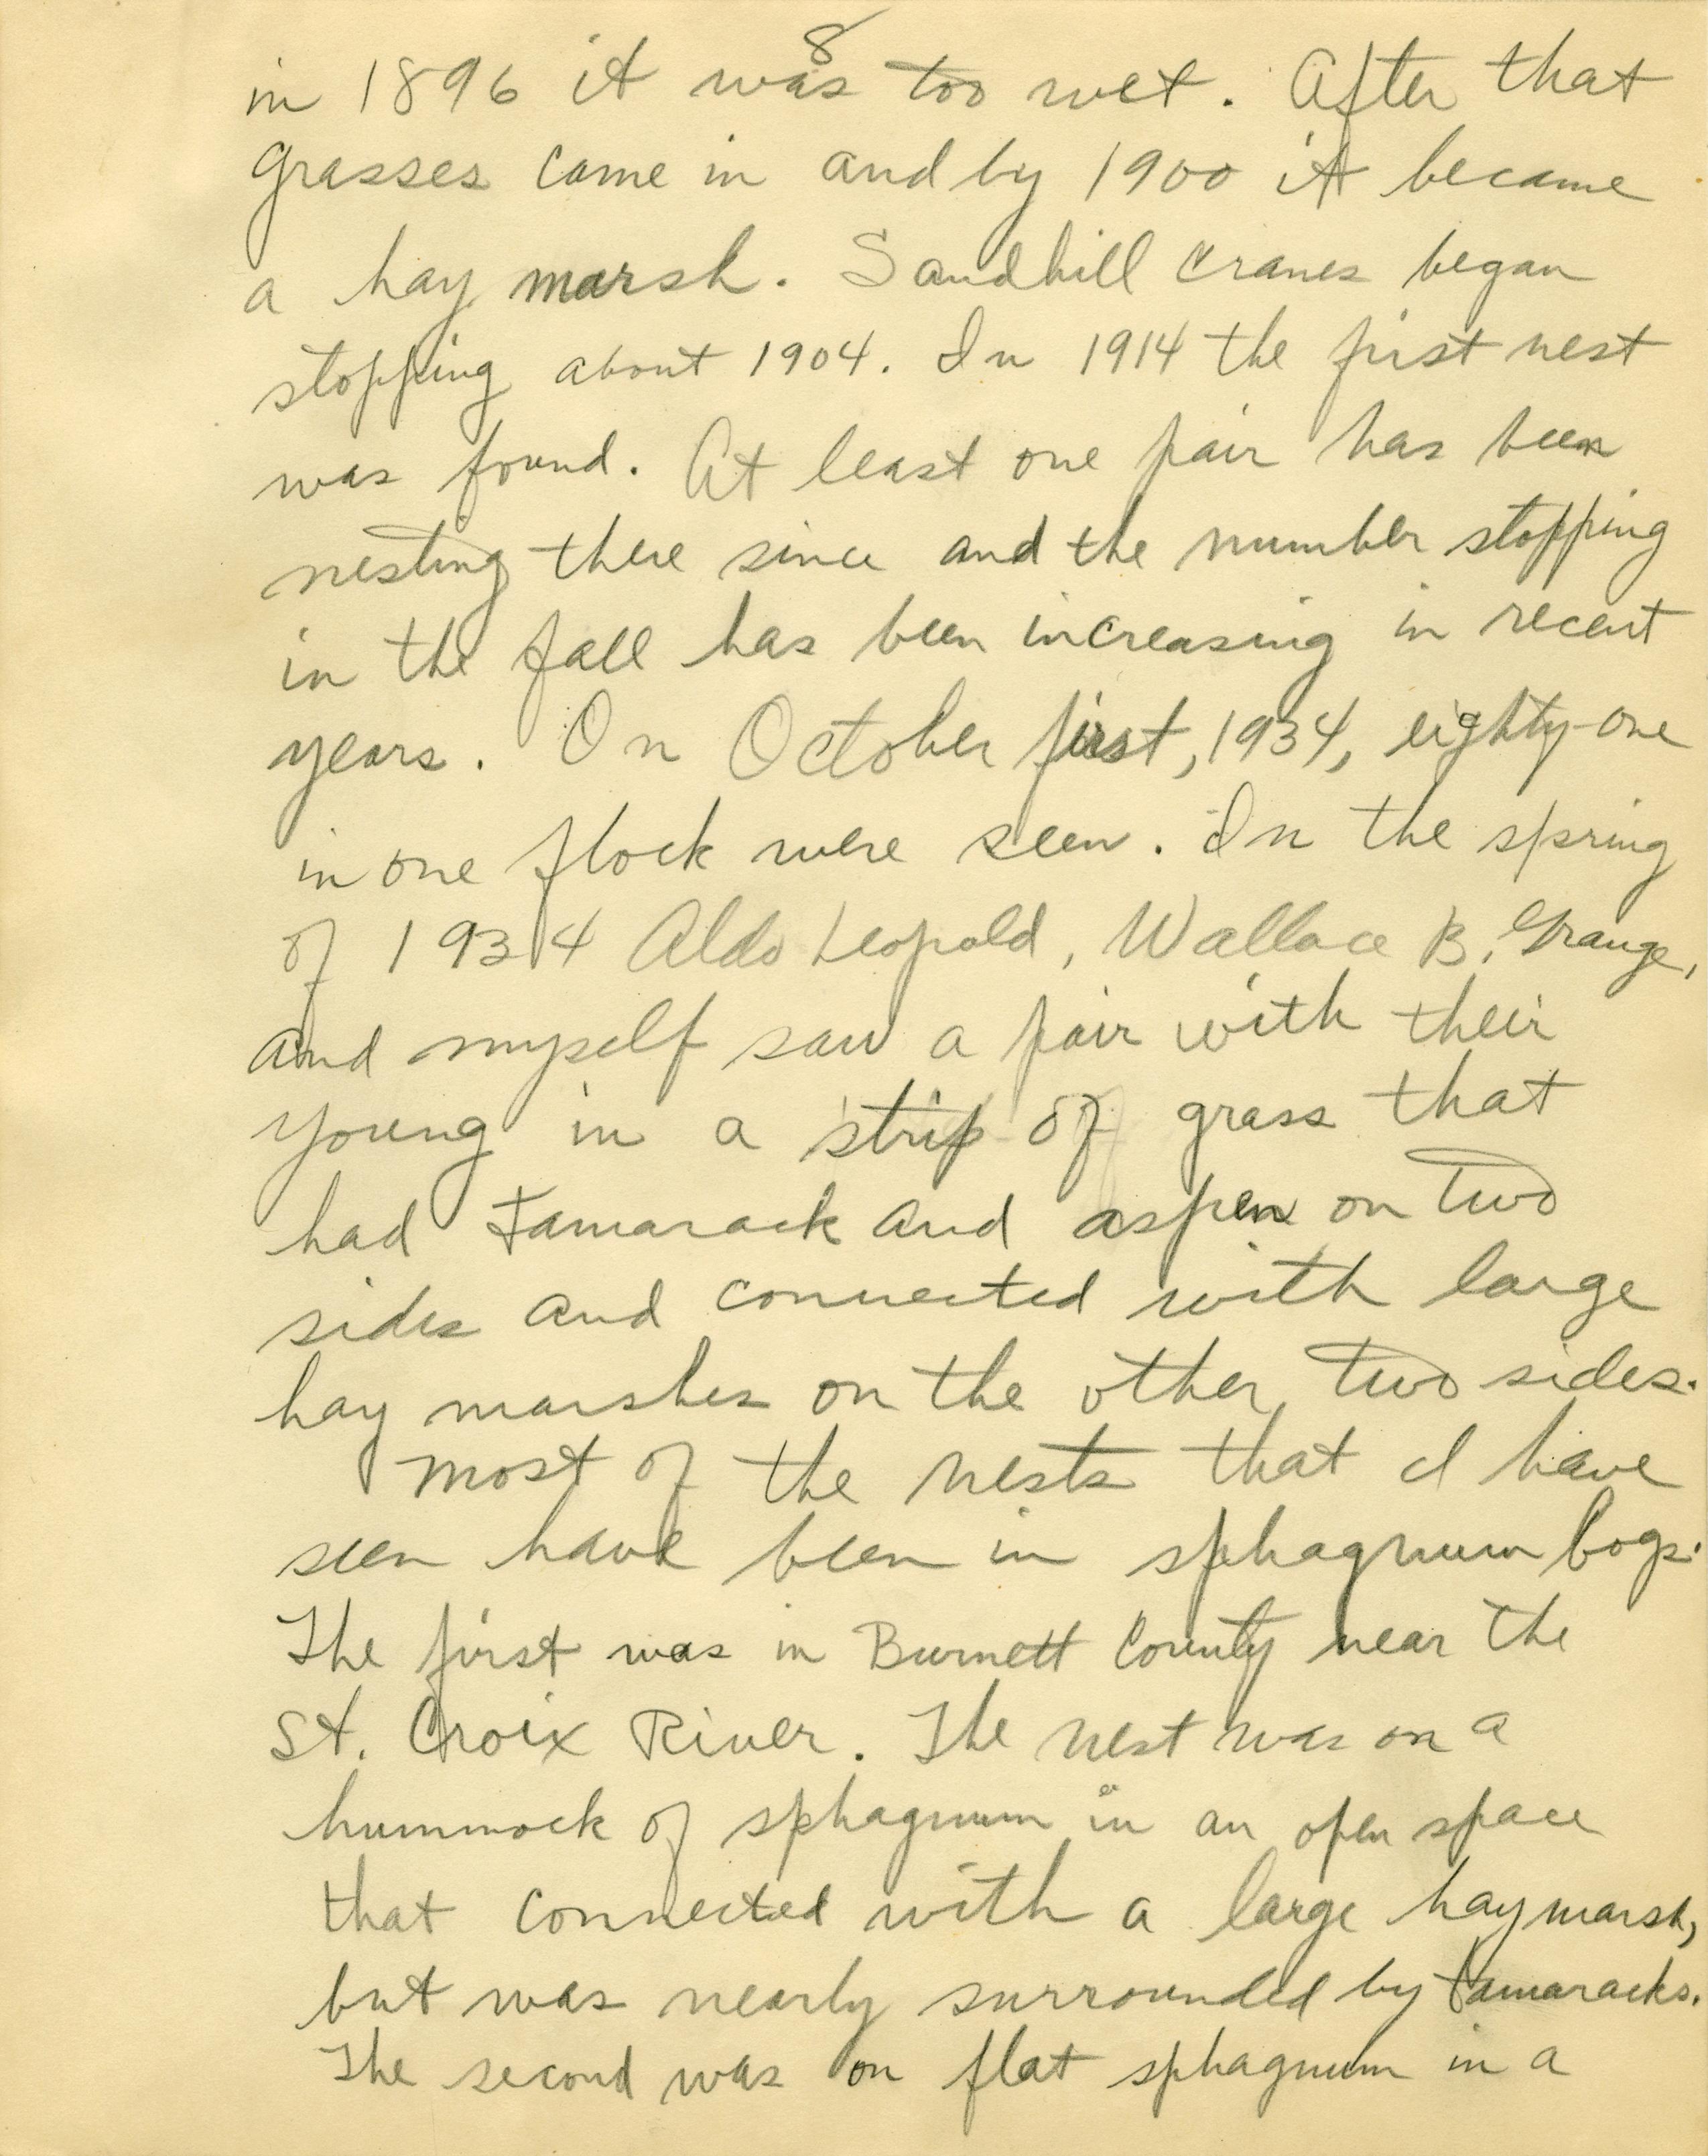 8
in 1896 it was too wet. After that
grasses came in and by 1900 it became
a hay marsh. Sandhill cranes began
stopping about 1904. In 1914 the first nest
was found. At least one pair has been
nesting there since and the number stopping
in the fall has been increasing in recent
years. On October first, 1934, eighty-one
in one flock were seen. In the spring
of 1934 Aldo Leopold, Wallace B. Grange,
and myself saw a pair with their
young in a strip of grass that
had tamarack and aspen on two
sides and connected with large
hay marshes on the other two sides.
Most of the nests that I have
seen have been in sphagnum bogs.
The first was in Burnett County near the
St. Croix River. The nest was on a
hummock of sphagnum in an open space
that connected with a large hay marsh,
but was nearly surrounded by tamaracks.
The second was on flat sphagnum in a